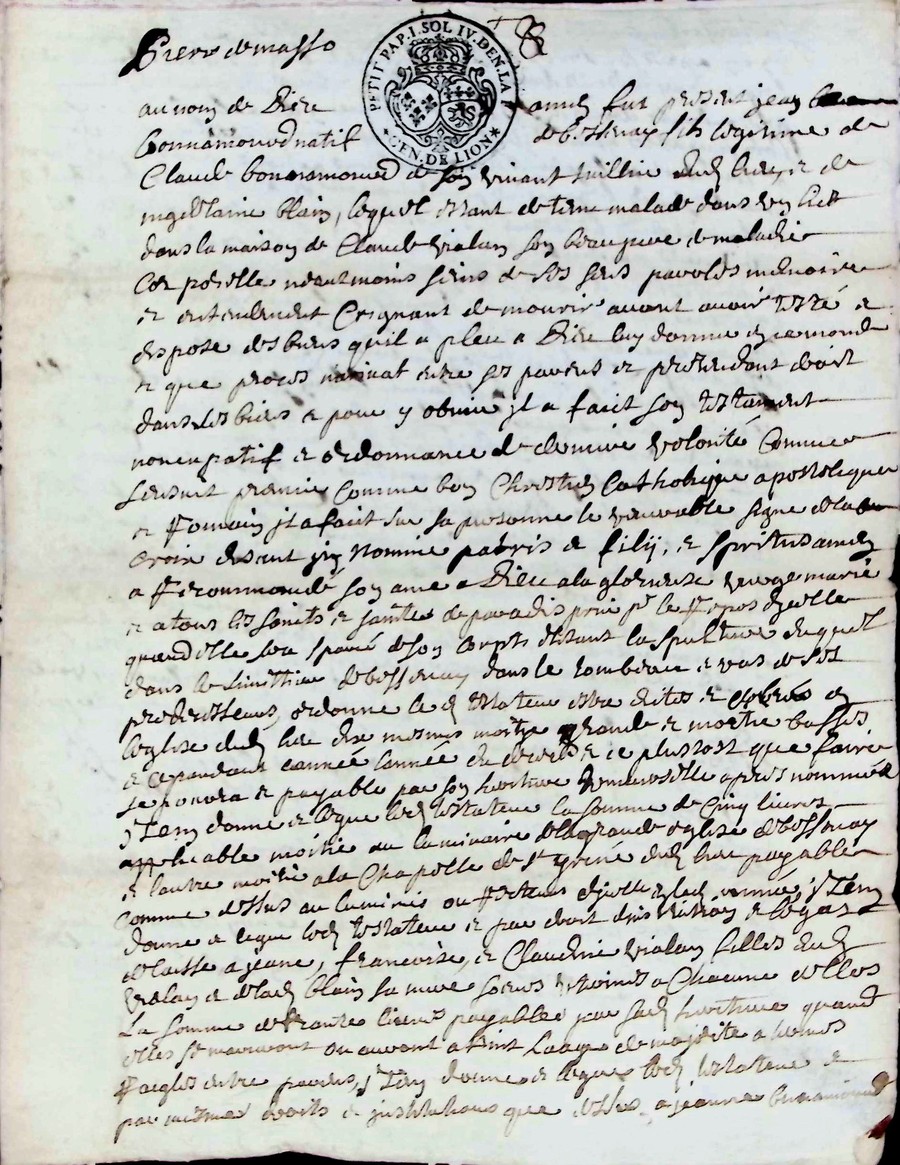 Pierre demasso
PETIT PAP. I. SOL IV. DEN. LA F
GEN. DE LION
au nom de Dieu amen fut present jean
bonnamoured natif de bessenay fils legitime de
Claude bonnamoured de son vivant dud lieu, et de
blain, lequel estant detenu malade dans un lict
dans la maison de Claude vialan son beaupere de maladie
corporelle neantmoins sains de ses sens parolle memoire
et entendement Creignant de mourir avant avoir testé et
dispose des biens quil a pleu a Dieu luy donner en ce monde
et que proces naquit entre ses parens et pretendant droit
dans ses biens et pour y obvier il a fait son testament
noncupatif et ordonnance de derniere volonté Comme
sensuit premier comme bon Chrestien Catholique apostolique
et Romain il a fait sur sa personne le venerable signe de la
croix disant in Nomine patris et filij, et spiritus amen
a Recommandé son ame a Dieu a la glorieuse vierge marie
et a tous les saints et saintes de paradis pour le Repos dicelle
quand elle sera separé de son corps elisant la sepulture duquel
dans le simittiere de bessenay dans le tombeau et vas de ses
predecesseurs, ordonne led testateur estre dites et en
leglise dud lieu dix messes moitie grande et moitie basses
et ce pendant l'année de son et ce plustost que faire
se poura et payable par son heritiere universelle apres nommée
Item donne et legue led testateur la somme de Cinq livres
applicable moitie au luminaire de la grande eglise de bessenay
et l'autre moitie a la Chapelle de st dud lieu payable
comme dessus au ou Recteurs dicelle lad année, Item
donne et legue led testateur et par droit dinstitution et legat
delaisse a jeane, francoise, et Claudine vialan filles dud
vialan et de lad blain sa mere soeurs uterines a Chacune delles
La somme de trante livres payables par sad heritiere quand
elles se mariront ou auront atteint laage de majorite a termes
Raiglés entre parens, Item donne et legue led testateur et
par mesmes droits et institutions que dessus, a jeanne bonnamoured